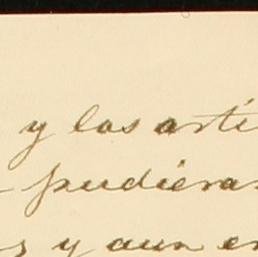 y los artí
pudieras
s y aun en